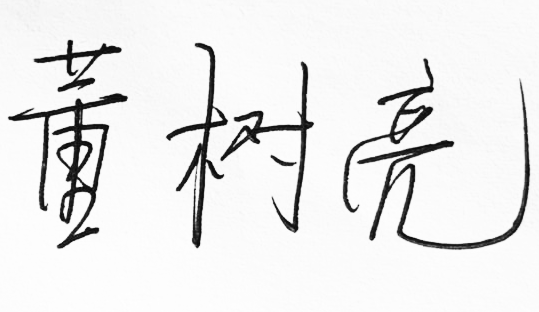 董树亮